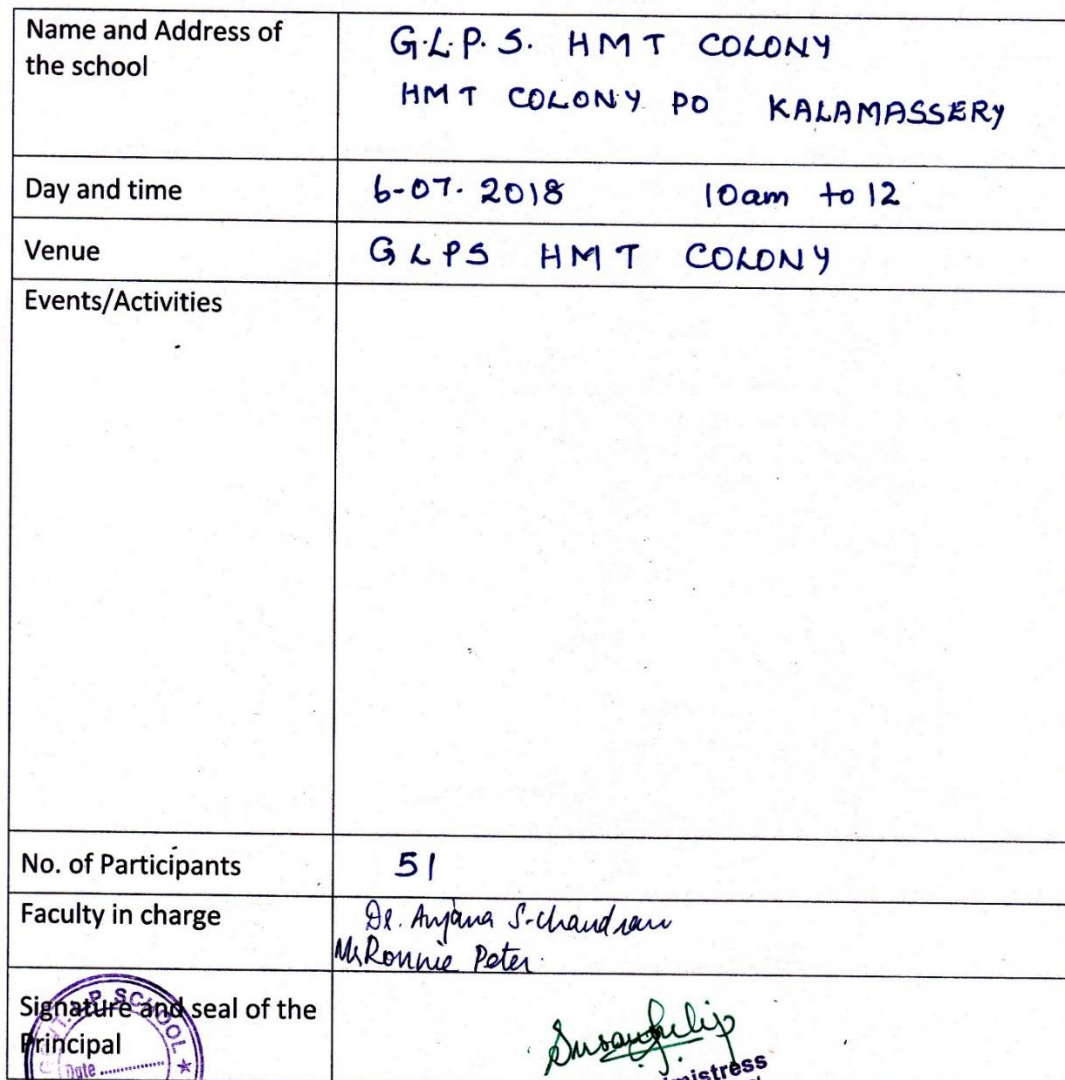 Name and Address of
the school
G.L.P.S. HMT COLONY
HMT COLONY PO KALAMASSERY
Day and time
6-07-2018 10am to 12
Venue
GLPS HMT COLONY
Events/Activities
No. of Participants
51
Faculty in charge
Dr. Anjana S. Chandran
Ms Ronnie Peter
Signature and seal of the
Principal
P SCHOOL
Date